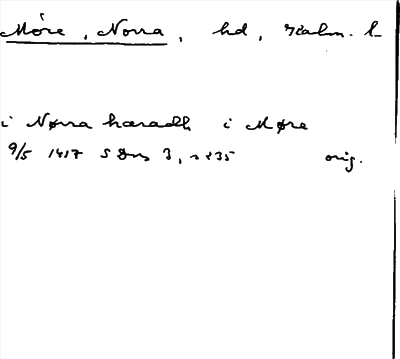 Möre, Norra, hd, Kalm. l
i Nørra hæradh i Møre
9/5 1417 SD ns 3, s 235 orig.